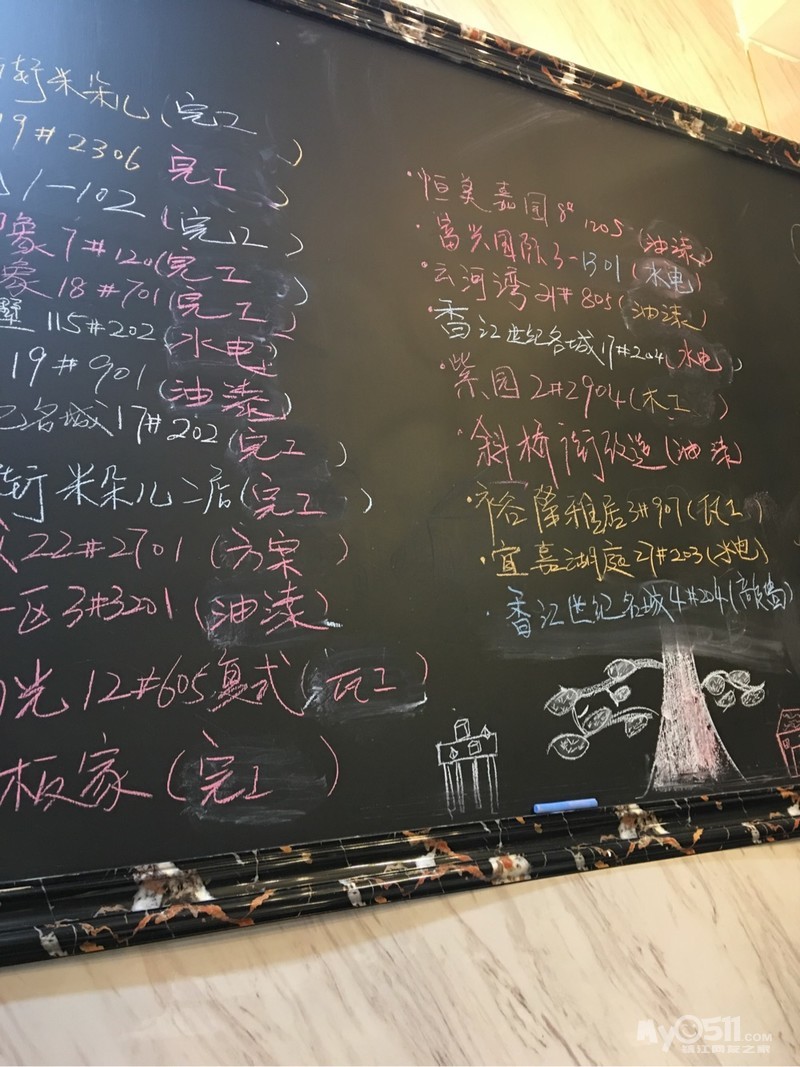 街米朵儿(完工
19#2306 完工)
1-102 (完工)
象7#120(完工)
象18#701(完工)
墅115#202(水电)
19#901(油漆)
己名城17#202(完工)
街米朵儿二居(完工)
22#2701(方案)
一区3#3201(油漆)
光12#605复式(瓦工)
板家(完工)
·恒美嘉园8#1205(油漆)
·富兴国际3-1301(水电)
·云河湾21#805(油漆)
·香江世纪名城17#204(水电)
·紫园2#2904(木工)
·斜桥街改造(油漆)
·谷荣雅居3#907(瓦工)
·宜嘉湖庭27#203(水电)
·香江世纪名城4#204(敲凿)
My0511.COM
镇江网友之家